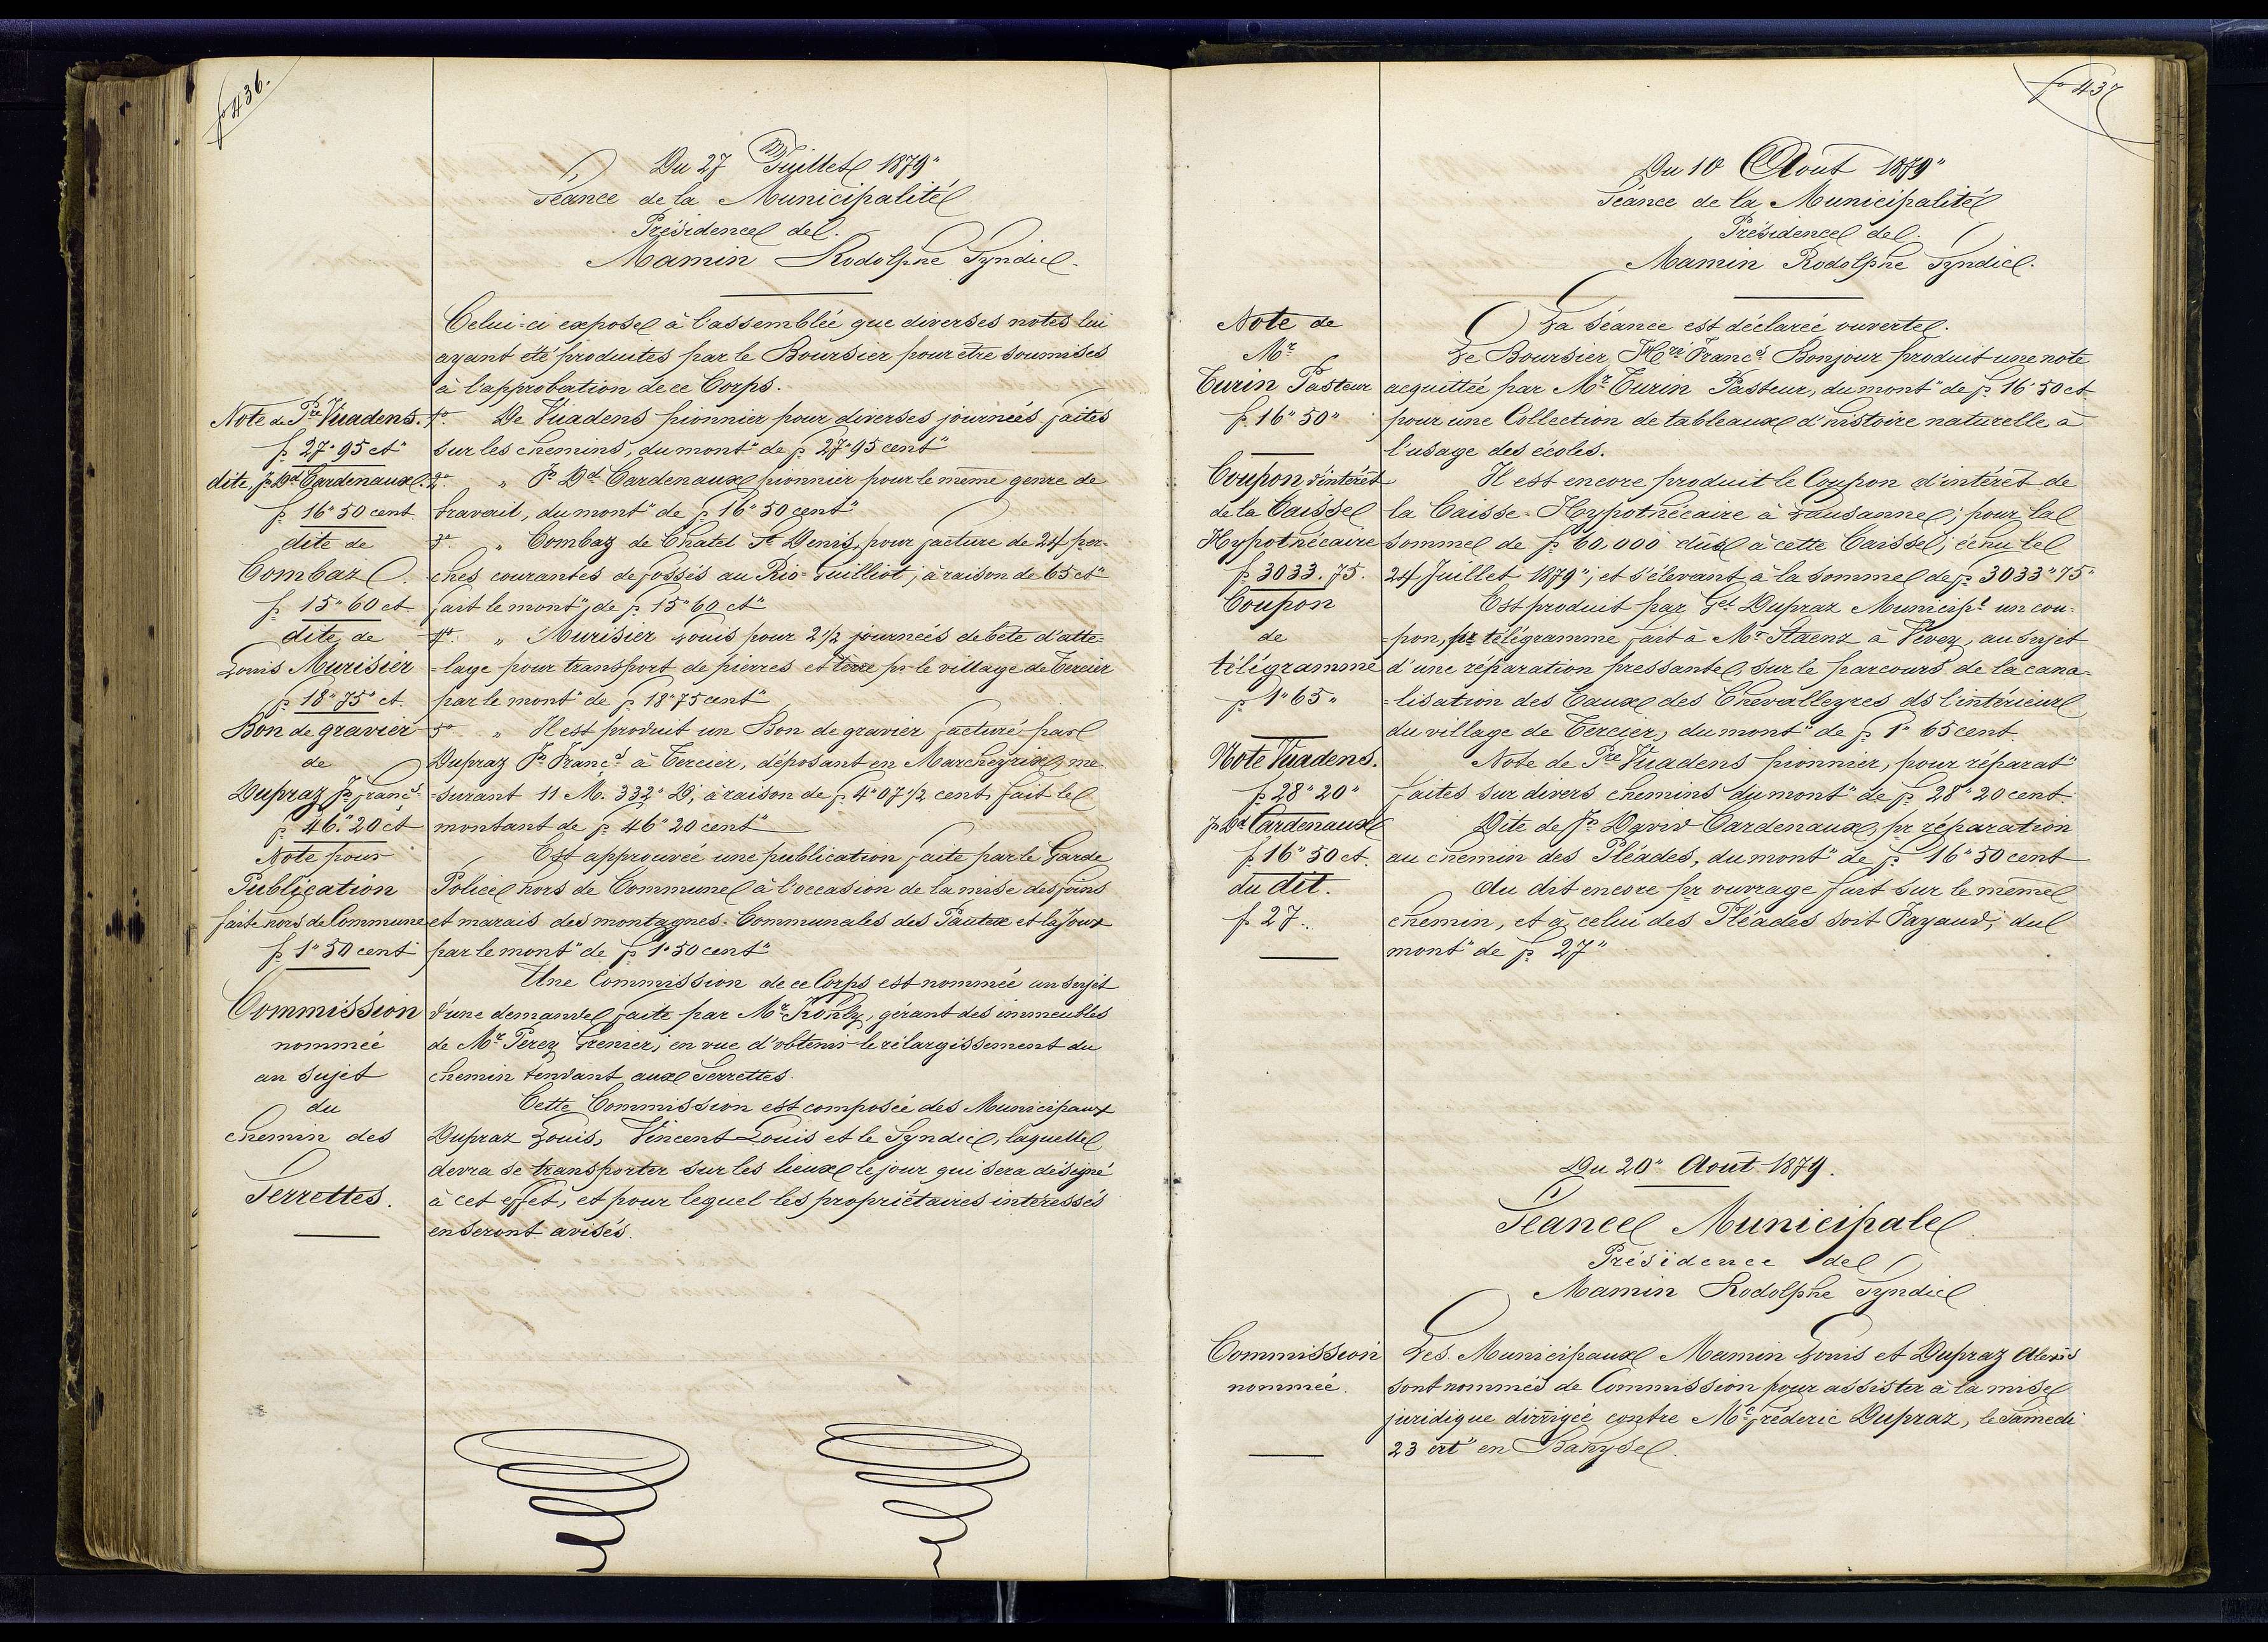 fo 436.
Du 27 Juillet 1879"
Séance de la Municipalité
Présidence de
Mamin Rodolphe Syndic.
Celui=ci expose à l'assemblée que diverses notes lui
ayant été produites par le Boursier pour etre soumises
à l'approbation de ce Corps.
Note de Pre Vuadens.
fr. 27"95 ct"
1o. De Vuadens pionnier pour diverses journeés faites
sur les chemins, du mont" de fr. 27"95 cent"
dite, Jn Dd Cardenaux.
fr. 16"50 cent
2o. " Jn Dd Cardenaux pionnier pour le même genre de
travail, du mont" de fr. 16"50 cent"
dite de
Combaz.
fr. 15"60 ct
3o. " Combaz de Chatel St Denis, pour facture de 24 per=
ches courantes de fossés au Rio=Guilliot, à raison de 65 ct"
fait le mont", de fr. 15"60 ct"
dite de
Louis Murisier
fr. 18"75" ct.
4o. " Murisier Louis pour 2 1/2 journeés de bête d'atte=
=lage pour transport de pierres et terre pr. le village de Tercier
par le mont" de fr. 18"75 cent"
Bon de gravier
de
Dupraz Jn Francs
fr. 46."20 ct
5o. " Il est produit un Bon de gravier facturé par
Dupraz Jn Francs à Tercier, déposant en Marcheyrix, me=
=surant 11 M. 332" D; à raison de fr. 4"07 1/2 cent, fait le
montant de fr. 46"20 cent"
Note pour
Publication
faite hors de Commune
fr. 1"50 cent
Est approuvée une publication faite par le Garde
Police hors de Commune à l'occasion de la mise des foins
et marais des montagnes Communales des Pautex et la Joux
par le mont" de fr. 1"50 cent"
Commission
nommeé
au sujet
du
chemin des
Serrettes.
Une Commission de ce Corps est nommeé au sujet
d'une demande faite par Mr , gérant des immeubles
de Mr Pérey Grenier, en vue d'obtenir le rélargissement du
chemin tendant aux Serrettes.
Cette Commission est composeé des Municipaux
Dupraz Louis, Vincent Louis et le Syndic, laquelle
devra se transporter sur les lieux le jour qui sera désigné
à cet effet, et pour lequel les propriétaires intéressés
en seront avisés.
fo 437
Du 10 Aout 1879"
Séance de la Municipalité
Présidence de
Mamin Rodolphe Syndic.
La séance est déclareé ouverte.
Note de
Mr
Turin Pasteur
fr. 16"50"
Le Boursier Hri Francs Bonjour produit une note
acquitteé par Mr Turin Pasteur, du mont" de fr. 16"50 ct
pour une Collection de tableaux d'histoire naturelle à
l'usage des écoles.
Coupon d'intérêt
de la Caisse
Hypothécaire
fr. 3033.75.
Il est encore produit le Coupon d'intérêt de
la Caisse=Hypothécaire à Lausanne; pour la
somme de fr. 60,000 dûe à cette Caisse, échu le
24 Juillet 1879"; et s'élevant à la somme de fr. 3033"75"
Coupon
de
télégramme
fr. 1"65"
Est produit par Gel Dupraz Municipl un cou=
=pon, pr télégramme fait à Mr Staenz à Vevey, au sujet
d'une réparation pressante, sur le parcours de la cana=
=lisation des Eaux des Chevalleyres ds l'intérieur
du village de Tercier, du mont" de fr. 1" 65 cent.
Note Vuadens.
fr. 28"20"
Note de Pre Vuadens pionnier, pour réparat"
faites sur divers chemins du mont" de fr. 28"20 cent.
Jn Dd Cardenaux
fr. 16"50 ct.
Dite de Jn David Cardenaux, pr réparation
au chemin des Pléades, du mont" de fr. 16"50 cent
du dit.
fr. 27.
du dit encore pr ouvrage fait sur le même
chemin, et à celui des Pléades soit Fayaud; du
mont" de fr. 27"
Du 20" Août 1879.
Séance Municipale
Présidence de
Mamin Rodolphe Syndic
Commission
nommeé.
Les Municipaux Mamin Louis et Dupraz Alexis
sont nommés de Commission pour assister à la mise
juridique dirrigeé contre Mc fréderic Dupraz, le Samedi
23 crt" en